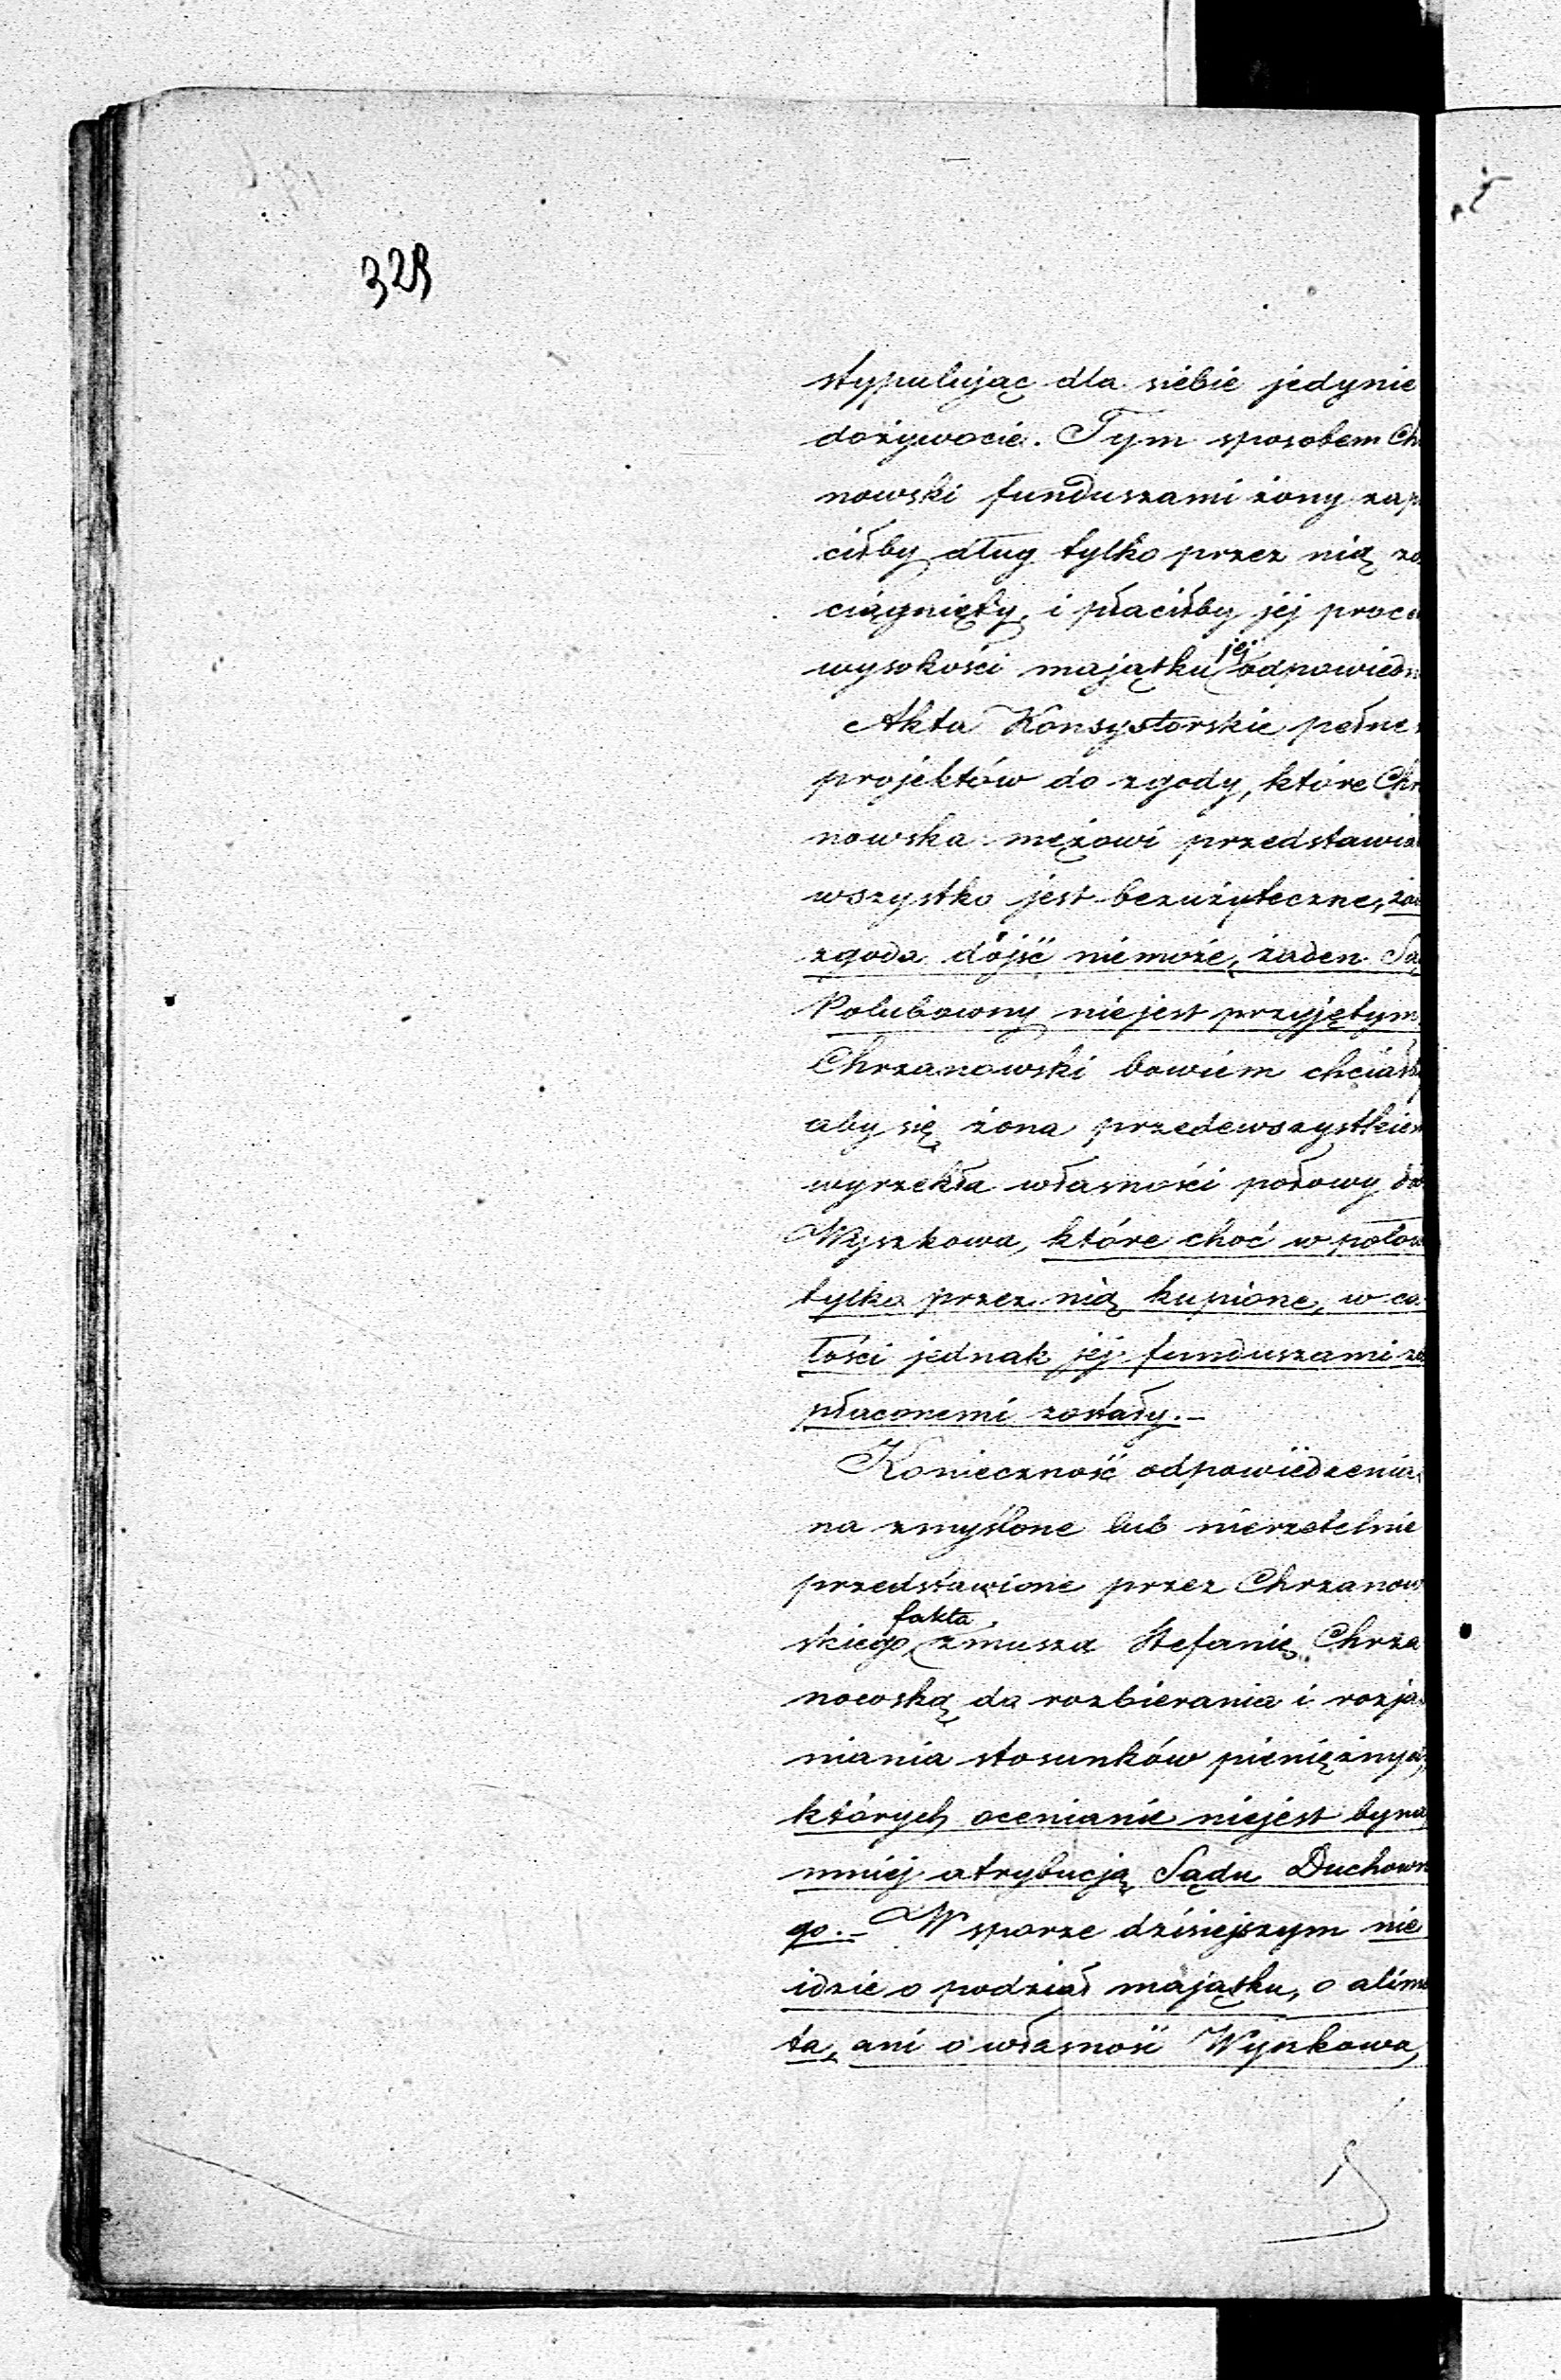 328
stypulując dla siebie jedynie
dożywocie. Tym sposobem Ch
nowski funduszami żony zap
ciłby dług tylko przez nią za
ciągnięty, i płaciłby jej proce
wysokości majątku jej odpowiedn
Akta Konsystorskie pełne
projektów do zgody, które Chr
nowska mężowi przedstawia
wszystko jest bezużyteczne, żad
zgoda dojść niemoże, żaden Są
Polubowny niejest przyjętym,
Chrzanowski bowiem chciałby
aby się żona przedewszystkiem
wyrzekła własności połowy dó
Wyszkowa, które choć w połow
tylko przez nią kupione, w ca
łości jednak jej funduszami za
płaconemi zostały.–
Konieczność odpowiedzenia
na zmyślone lub nierzetelnie
przedstawione przez Chrzanow
skiego fakta zmusza Stefanię Chrza
nowską do rozbierania i rozja
niania stosunków pieniężnych,
których ocenianie niejest byna
mniej atrybucją Sądu Duchown
go.– W sporze dzisiejszym nie
idzie o podział majątku, o alime
ta, ani o własność Wyszkowa,